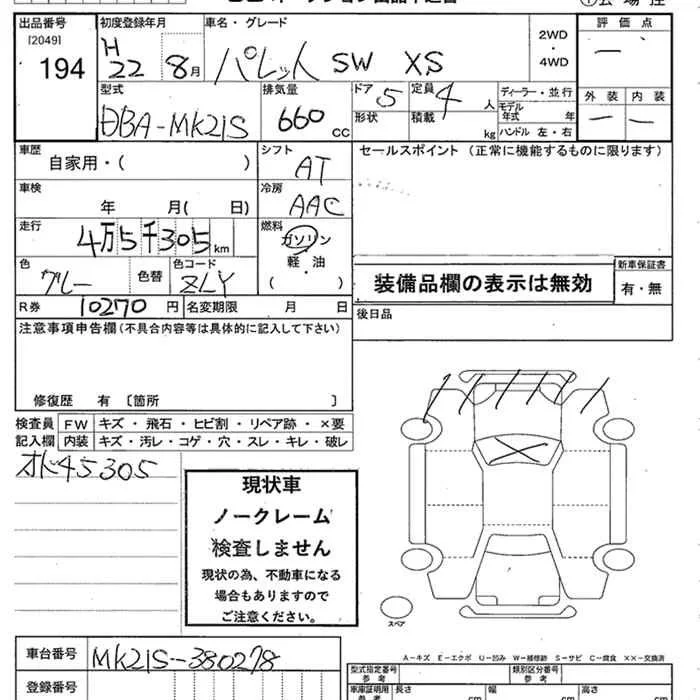 出品番号 初度登録年月 車名・グレード 評価点
[2049] 194 H 22 8月 パレット SW XS 2WD ・ 4WD —
型式 排気量 ドア 定員 ディーラー・並行 外装 内装
DBA-MK21S 660 CC 5 4人 モデル年式 年 — —
形状 積載 kg ハンドル 左・右
車歴 シフト セールスポイント (正常に機能するものに限ります)
自家用・( ) AT
車検 冷房
年 月( 日) AAC
走行 燃料
4万5千305km ガソリン
軽・油
( )
色 色替 色コード
グレー ZLY
装備品欄の表示は無効
新車保証書
有・無
R券 10270円 名変期限 月 日 後日品
注意事項申告欄(不具合内容等は具体的に記入して下さい)
修復歴 有 〔箇所 〕
検査員 FW キズ・飛石・ヒビ割・リペア跡・×要
記入欄 内装 キズ・汚レ・コゲ・穴・スレ・キレ・破レ
オド45305
現状車
ノークレーム
検査しません
現状の為、不動車になる
場合もありますので
ご注意ください。
スペア
A－キズ E－エクボ U－凹み W－補修跡 S－サビ C－腐食 ××－交換済
車台番号 MK21S-380278
登録番号
型式指定番号 参考 類別区分番号 参考
車庫証明用 参考 長さ cm 幅 cm 高さ cm